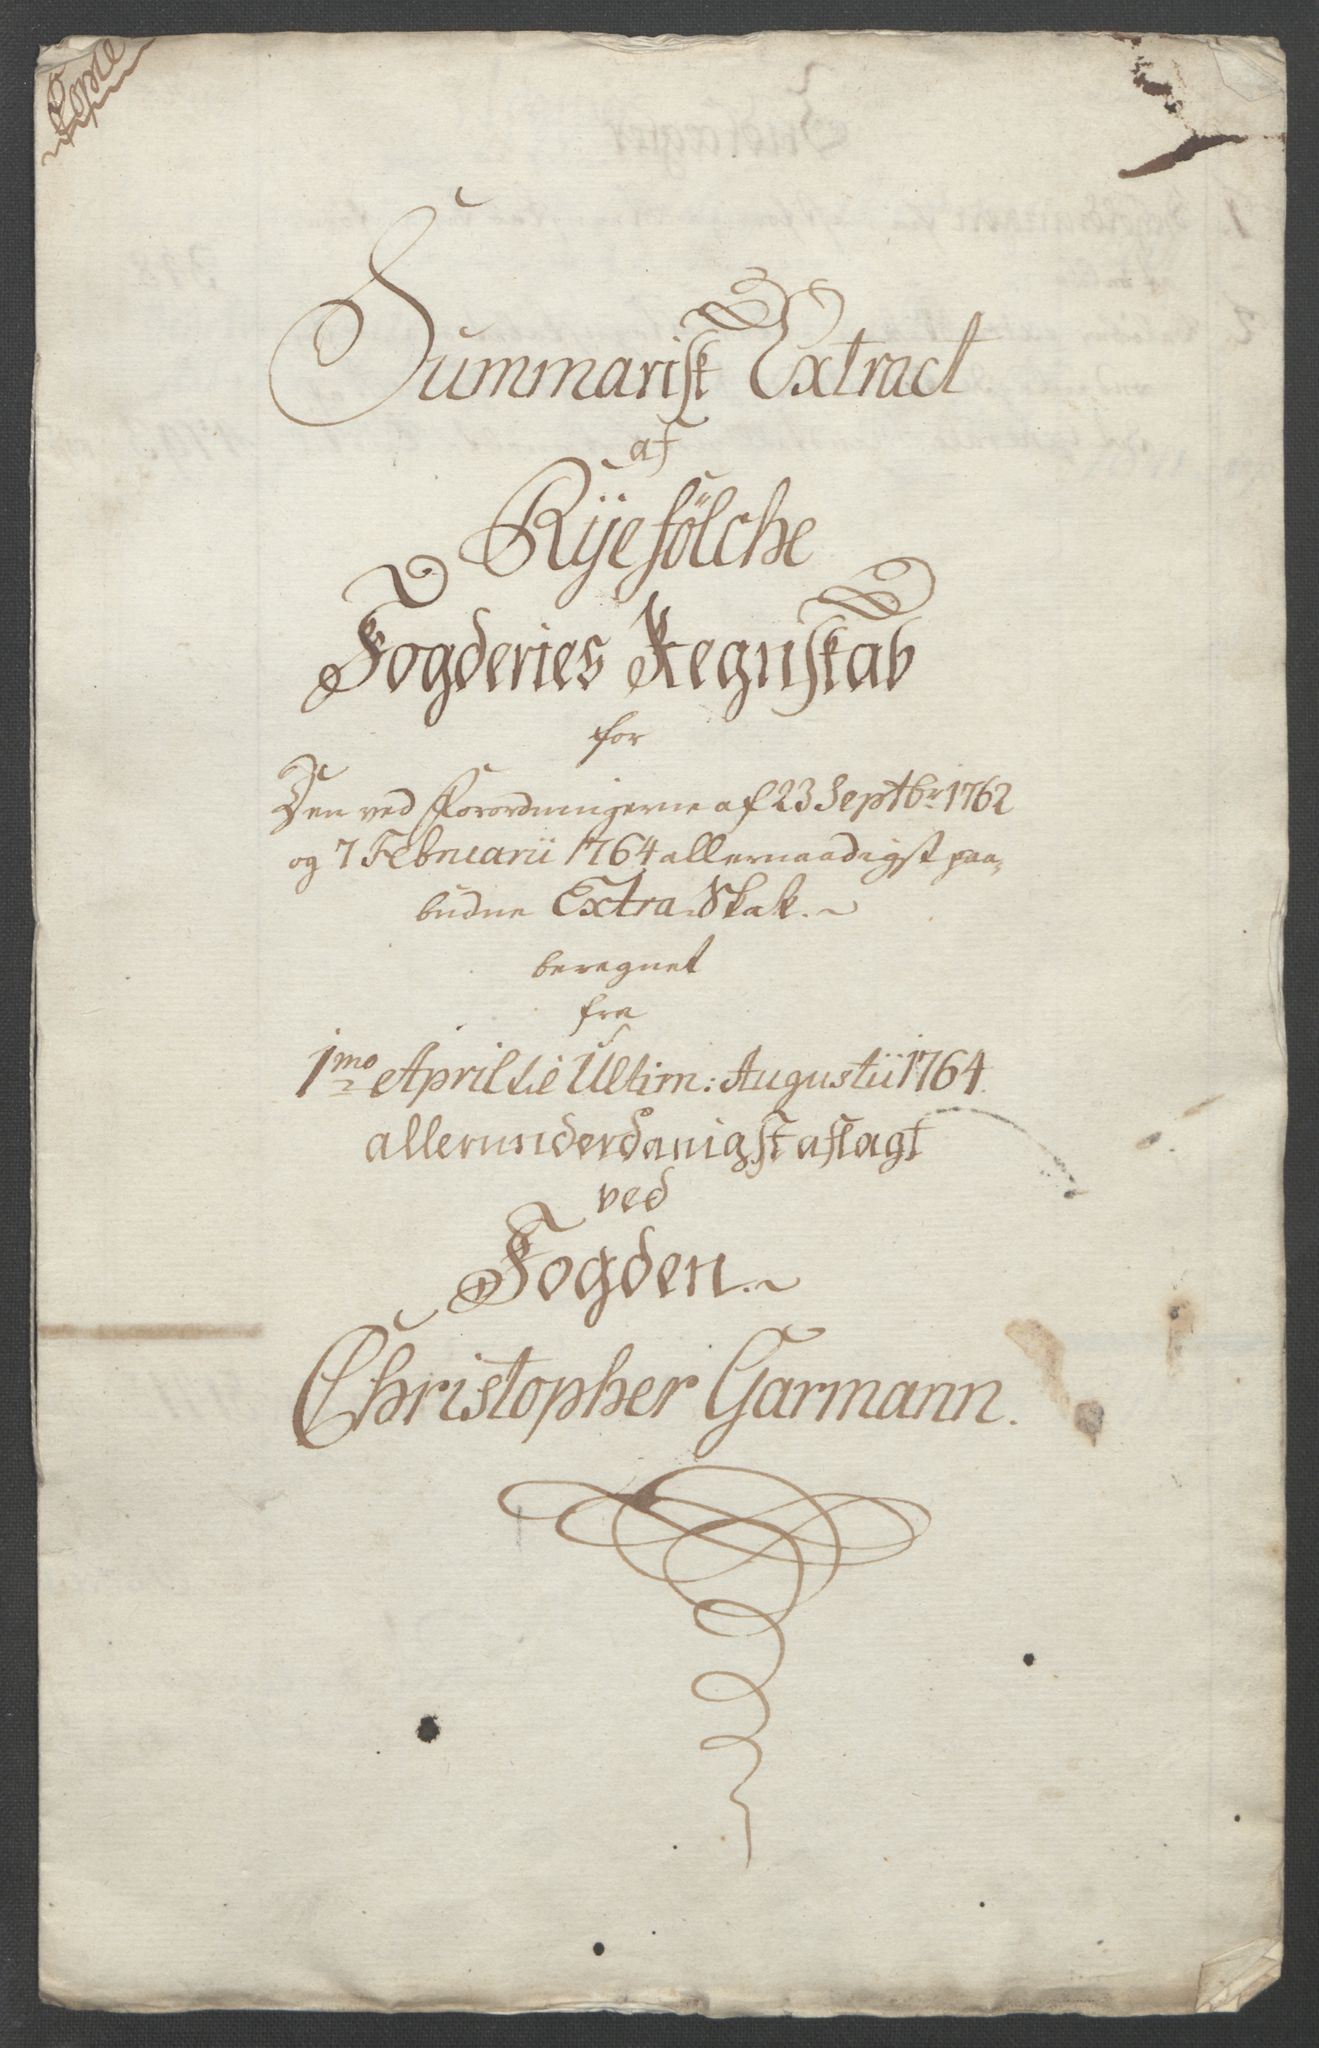 Copie
Summarisk Extract
af
Rÿefölche
Fogderies Regnskab
for
Den ved Forordningerne af 23 Septbr 1762
og 7 Februarii 1764 allernaadigst paa-
budne Extra Skat.
beregnet
fra
1mo April til Ultim: Augustii 1764.
allerunderdanigst aflagt
ved
Fogden.
Christopher Garmann.